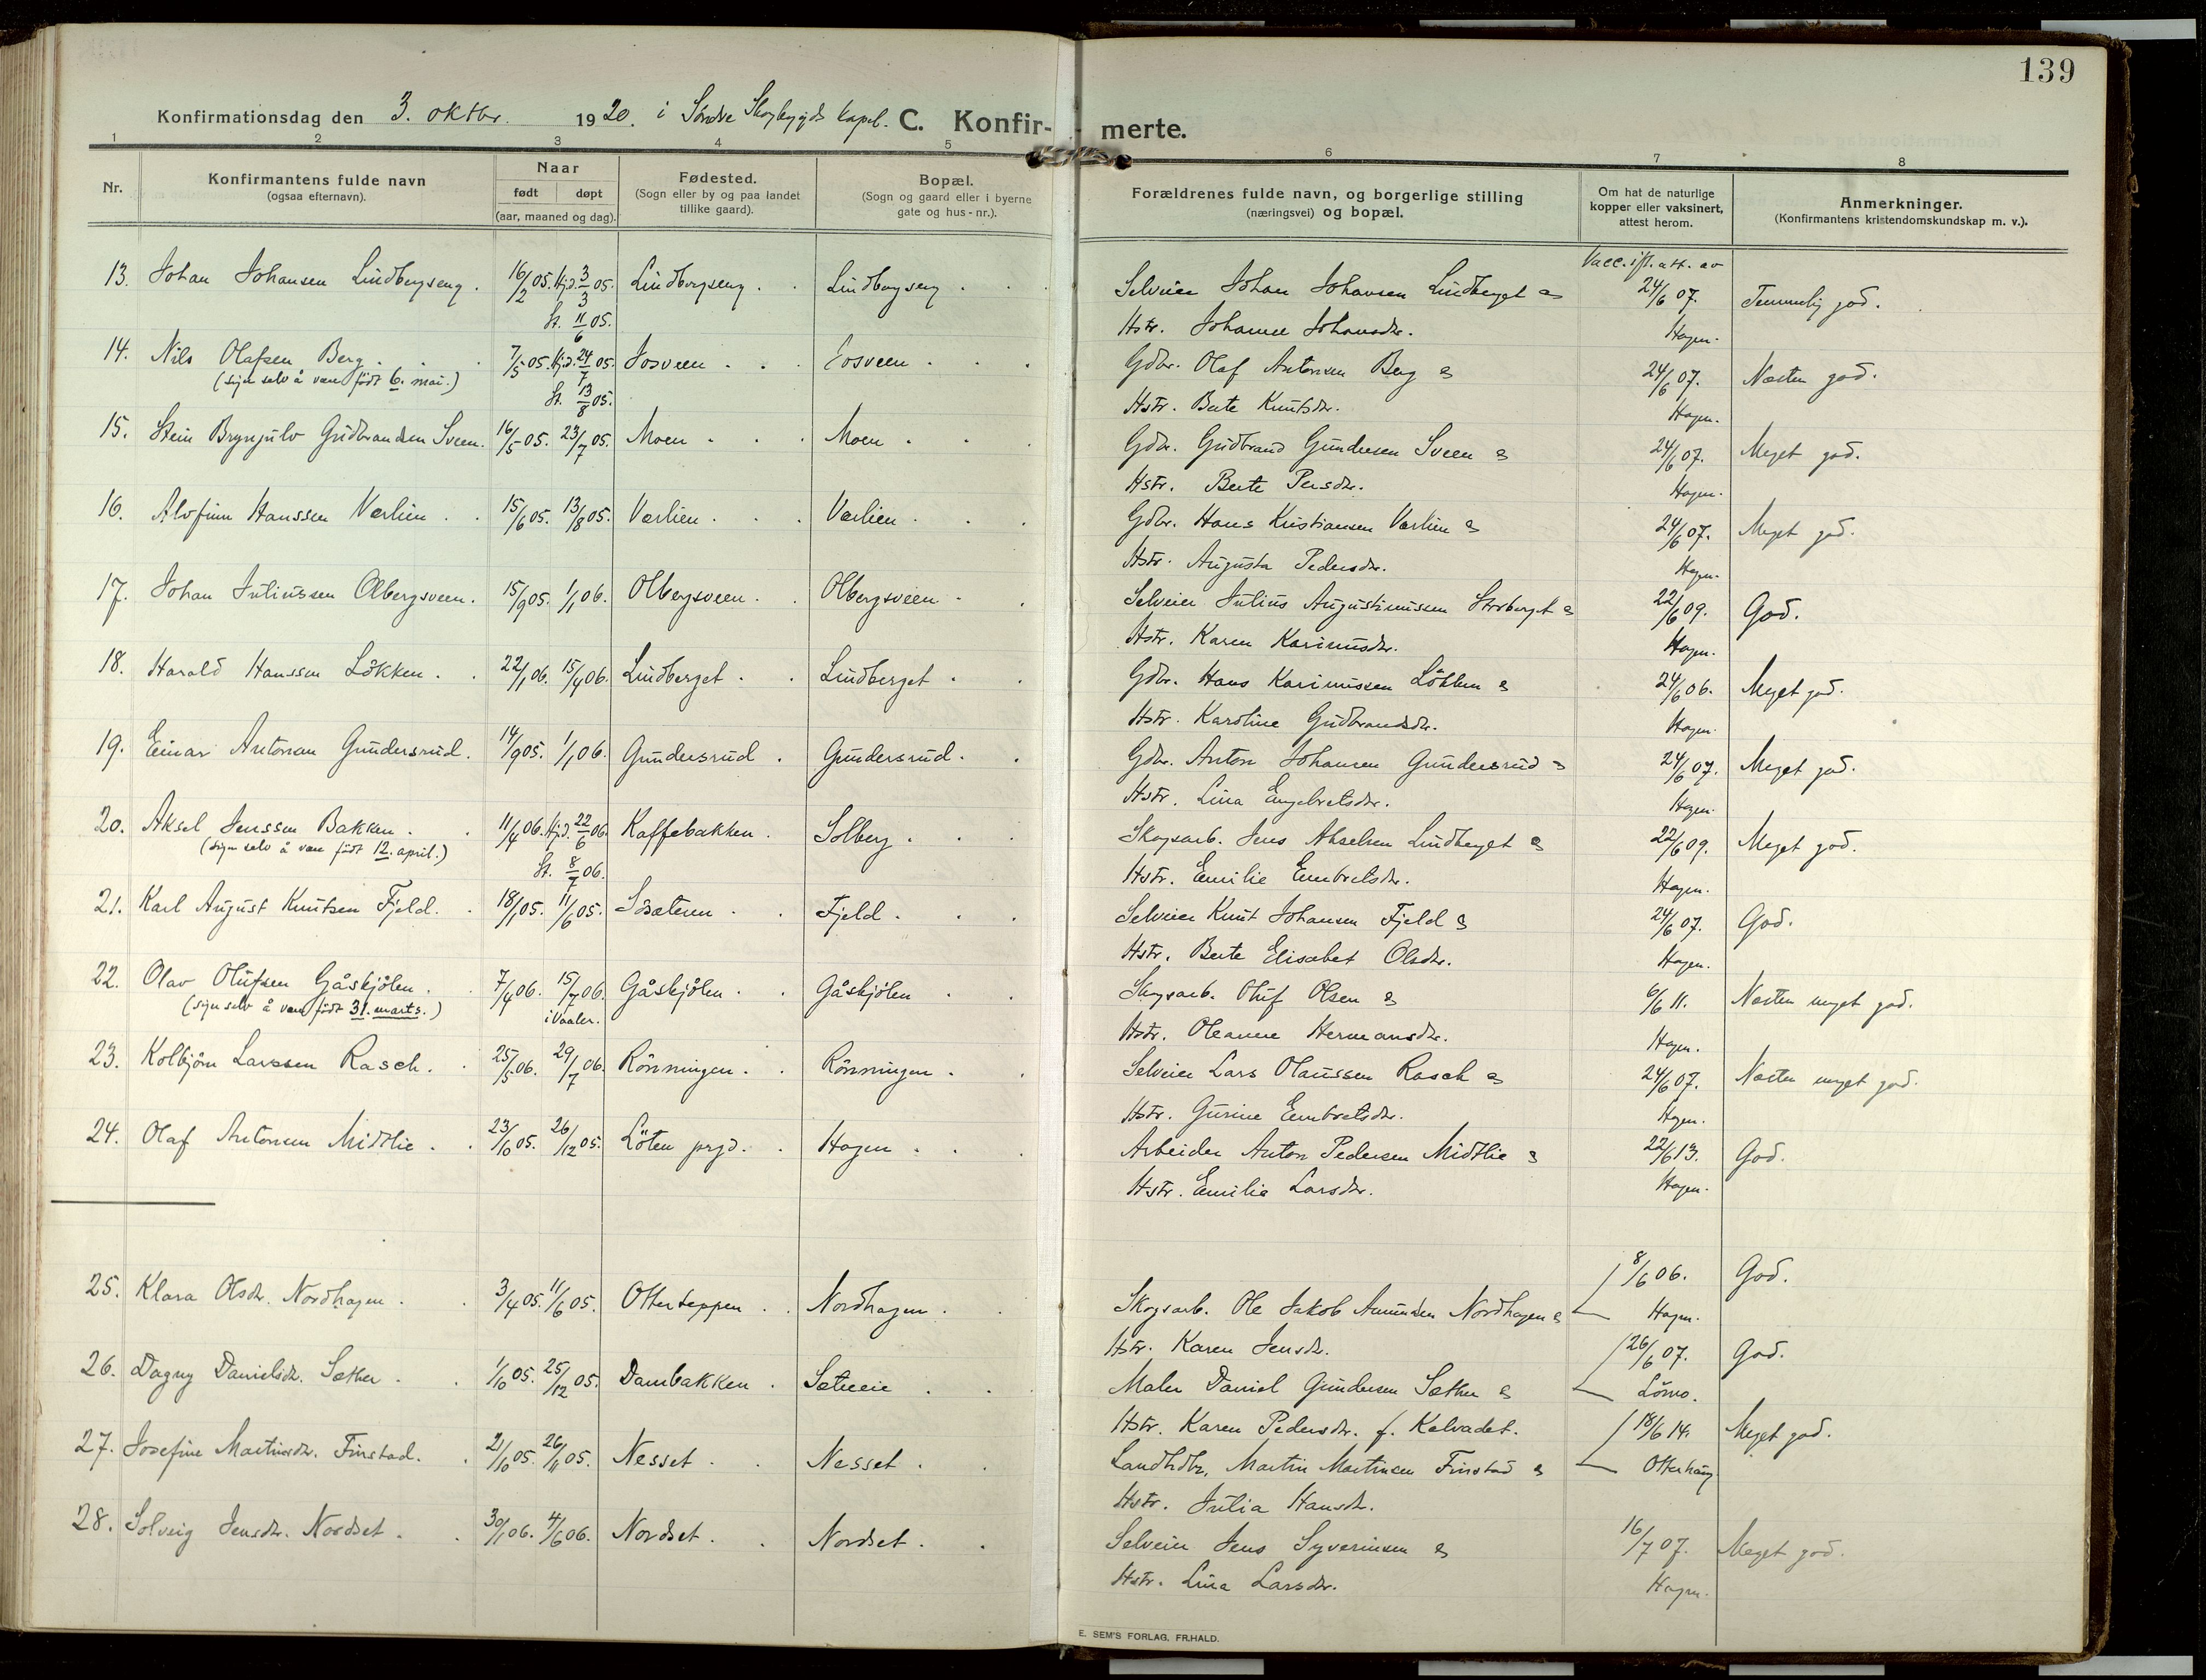 139
Konfirmationsdag den 3. oktbr. 1920. i Søndre Skogbygds kapel. C. Konfir- merte.
1 2 3 4 5 6 7 8
Nr.
Konfirmantens fulde navn
(ogsaa efternavn).
Naar
født døpt
(aar, maaned og dag).
Fødested.
(Sogn eller by og paa landet
tillike gaard).
Bopæl.
(Sogn og gaard eller i byerne
gate og hus-nr.).
Forældrenes fulde navn, og borgerlige stilling
(næringsvei) og bopæl.
Om hat de naturlige
kopper eller vaksinert,
attest herom.
Anmerkninger.
(Konfirmantens kristendomskundskap m. v.).
Vacc. ifl. att. av
13. Johan Johansen Lindbergseng. 16/2 05. Hjd. 3/3 05. Lindbergseng. Lindbergseng. Selveier Johan Johansen Lindberget & 24/6 07. Temmelig god.
St. 11/6 05. Hstr. Johanne Johansdr. Hagen.
14. Nils Olafsen Berg. 7/5 05. Hjd. 24/7 05. Josveen. Josveen. Gdbr. Olaf Antonsen Berg & 24/6 07. Næsten god.
(siger selv å være født 6. mai.) St. 13/8 05. Hstr. Berte Knutsdr. Hagen.
15. Stein Brynjulv Gudbrandsen Sveen. 16/5 05. 23/7 05. Moen. Moen. Gdbr. Gudbrand Gundersen Sveen & 24/6 07. Meget god.
Hstr. Berte Persdr. Hagen.
16. Alvfinn HanssenVærlien. 15/6 05. 13/8 05. Værlien. Værlien. Gdbr. Hans Kristiansen Værlien & 24/6 07. Meget god.
Hstr. Augusta Pedersdr. Hagen.
17. Johan Juliussen Olbergsveen. 15/9 05. 1/1 06. Olbergsveen. Olbergsveen. Selveier Julius Augustinussen Storberget & 22/6 09. God.
Hstr. Karen Karinusdr. Hagen.
18. Harald Hanssen Løkken. 22/1 06. 15/4 06. Lindberget. Lindberget. Gdbr. Hans Karinussen Løkken & 24/6 06. Meget god.
Hstr. Karoline Gudbrandsdr. Hagen.
19. Einar Antonsen Gundersrud. 14/9 05. 1/1 06. Gundersrud. Gundersrud. Gdbr. Anton Johansen Gundersrud & 24/6 07. Meget god.
Hstr. Lina Engebretsdr. Hagen.
20. Aksel Jenssen Bakken. 11/4 06. Hjd. 22/6 06. Kaffebakken. Solberg. Skogsarb. Jens Akselsen Lindberget & 22/6 09. Meget god.
(siger selv å være født 12. april.) St. 8/7 06. Hstr. Emilie Embretsdr. Hagen.
21. Karl August Knutsen Fjeld. 18/1 05. 11/6 05. Fjeld. Selveier Knut Johansen Fjeld & 24/6 07. God.
Hstr. Berte Elisabet Olsdr. Hagen.
22. Olav Olufsen Gåskjølen. 7/4 06. 15/7 06. Gåskjølen. Gåskjølen. Skogsarb. Oluf Olsen & 6/6 11. Næsten meget god.
(siger selv å være født 31. marts.) i Vaaler. Hstr. Oleanne Hermansdr. Hagen.
23. Kolbjørn Larssen Rasch. 25/5 06. 29/7 06. Rønningen. Rønningen. Selveier Lars Olaussen Rasch & 24/6 07. Næsten meget god.
Hstr. Gurine Embretsdr. Hagen.
24. Olaf Antonsen Midtlie. 23/10 05. 26/12 05. Løten prgd. Hagen. Arbeider Anton Pedersen Midtlie & 22/6 13. God.
Hstr. Emilie Larsdr. Hagen.
25. Klara Olsdr. Nordhagen. 3/4 05. 11/6 05. Otterteppen. Nordhagen. Skogsarb. Ole Jakob Amundsen Nordhagen & 8/6 06. God.
Hstr. Karen Jensdr. Hagen.
26. Dagny Danielsdr. Sæther. 1/10 05. 25/12 05. Dambakken. Sætreeie. Maler Daniel Gundersen Sæther & 26/6 07. God.
Hstr. Karen Pedersdr. f. Kalvadet. Lømo.
27. Josefine Martinsdr. Finstad. 21/10 05. 26/11 05. Nesset. Nesset. Landhdlr. Martin Martinsen Finstad & 18/6 14. Meget god.
Hstr. Julia Hansdr.
28. Solveig Jensdr. Nordset. 30/1 06. 4/6 06. Nordset. Nordset. Selveier Jens Syverinsen & 16/7 07. Meget god.
Hstr. Lina Larsdr. Hagen.
E. SEM'S FORLAG, FR.HALD.